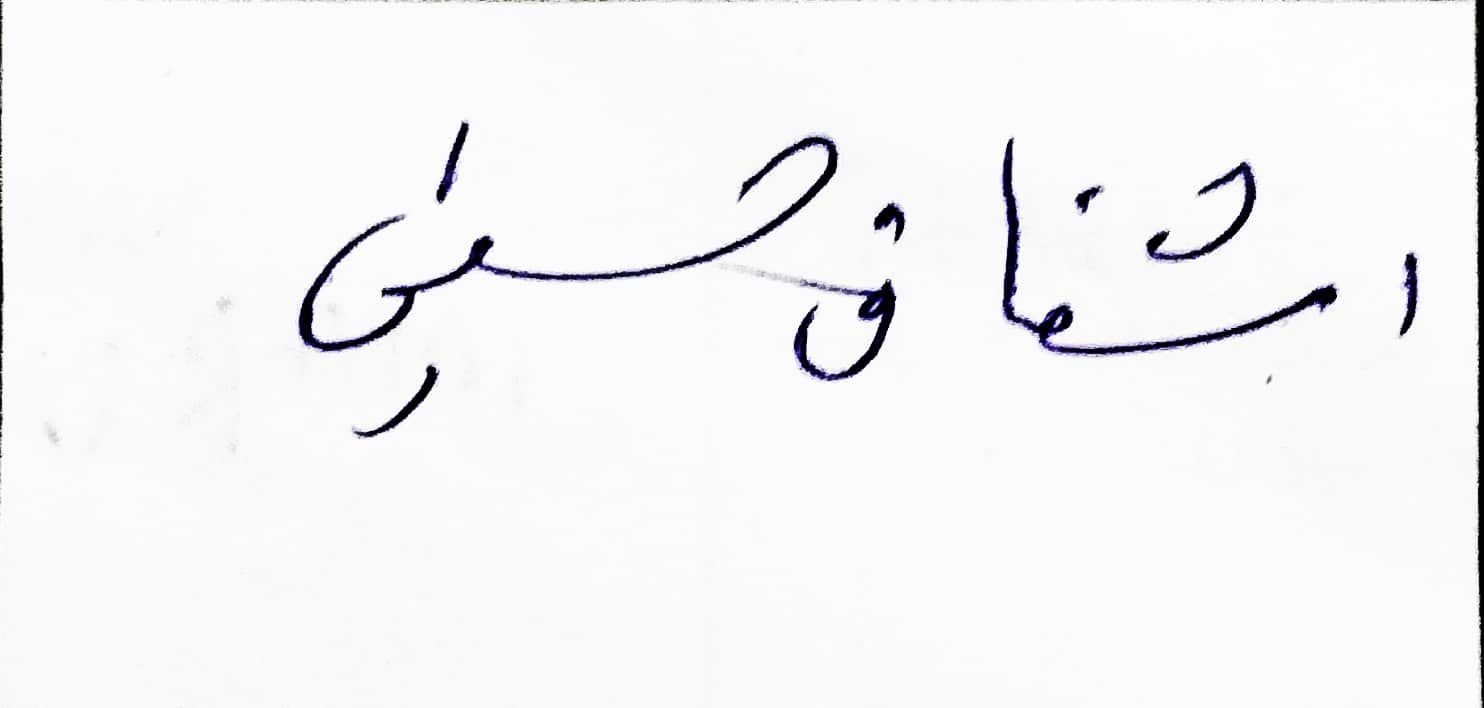 اشفاق حسینی